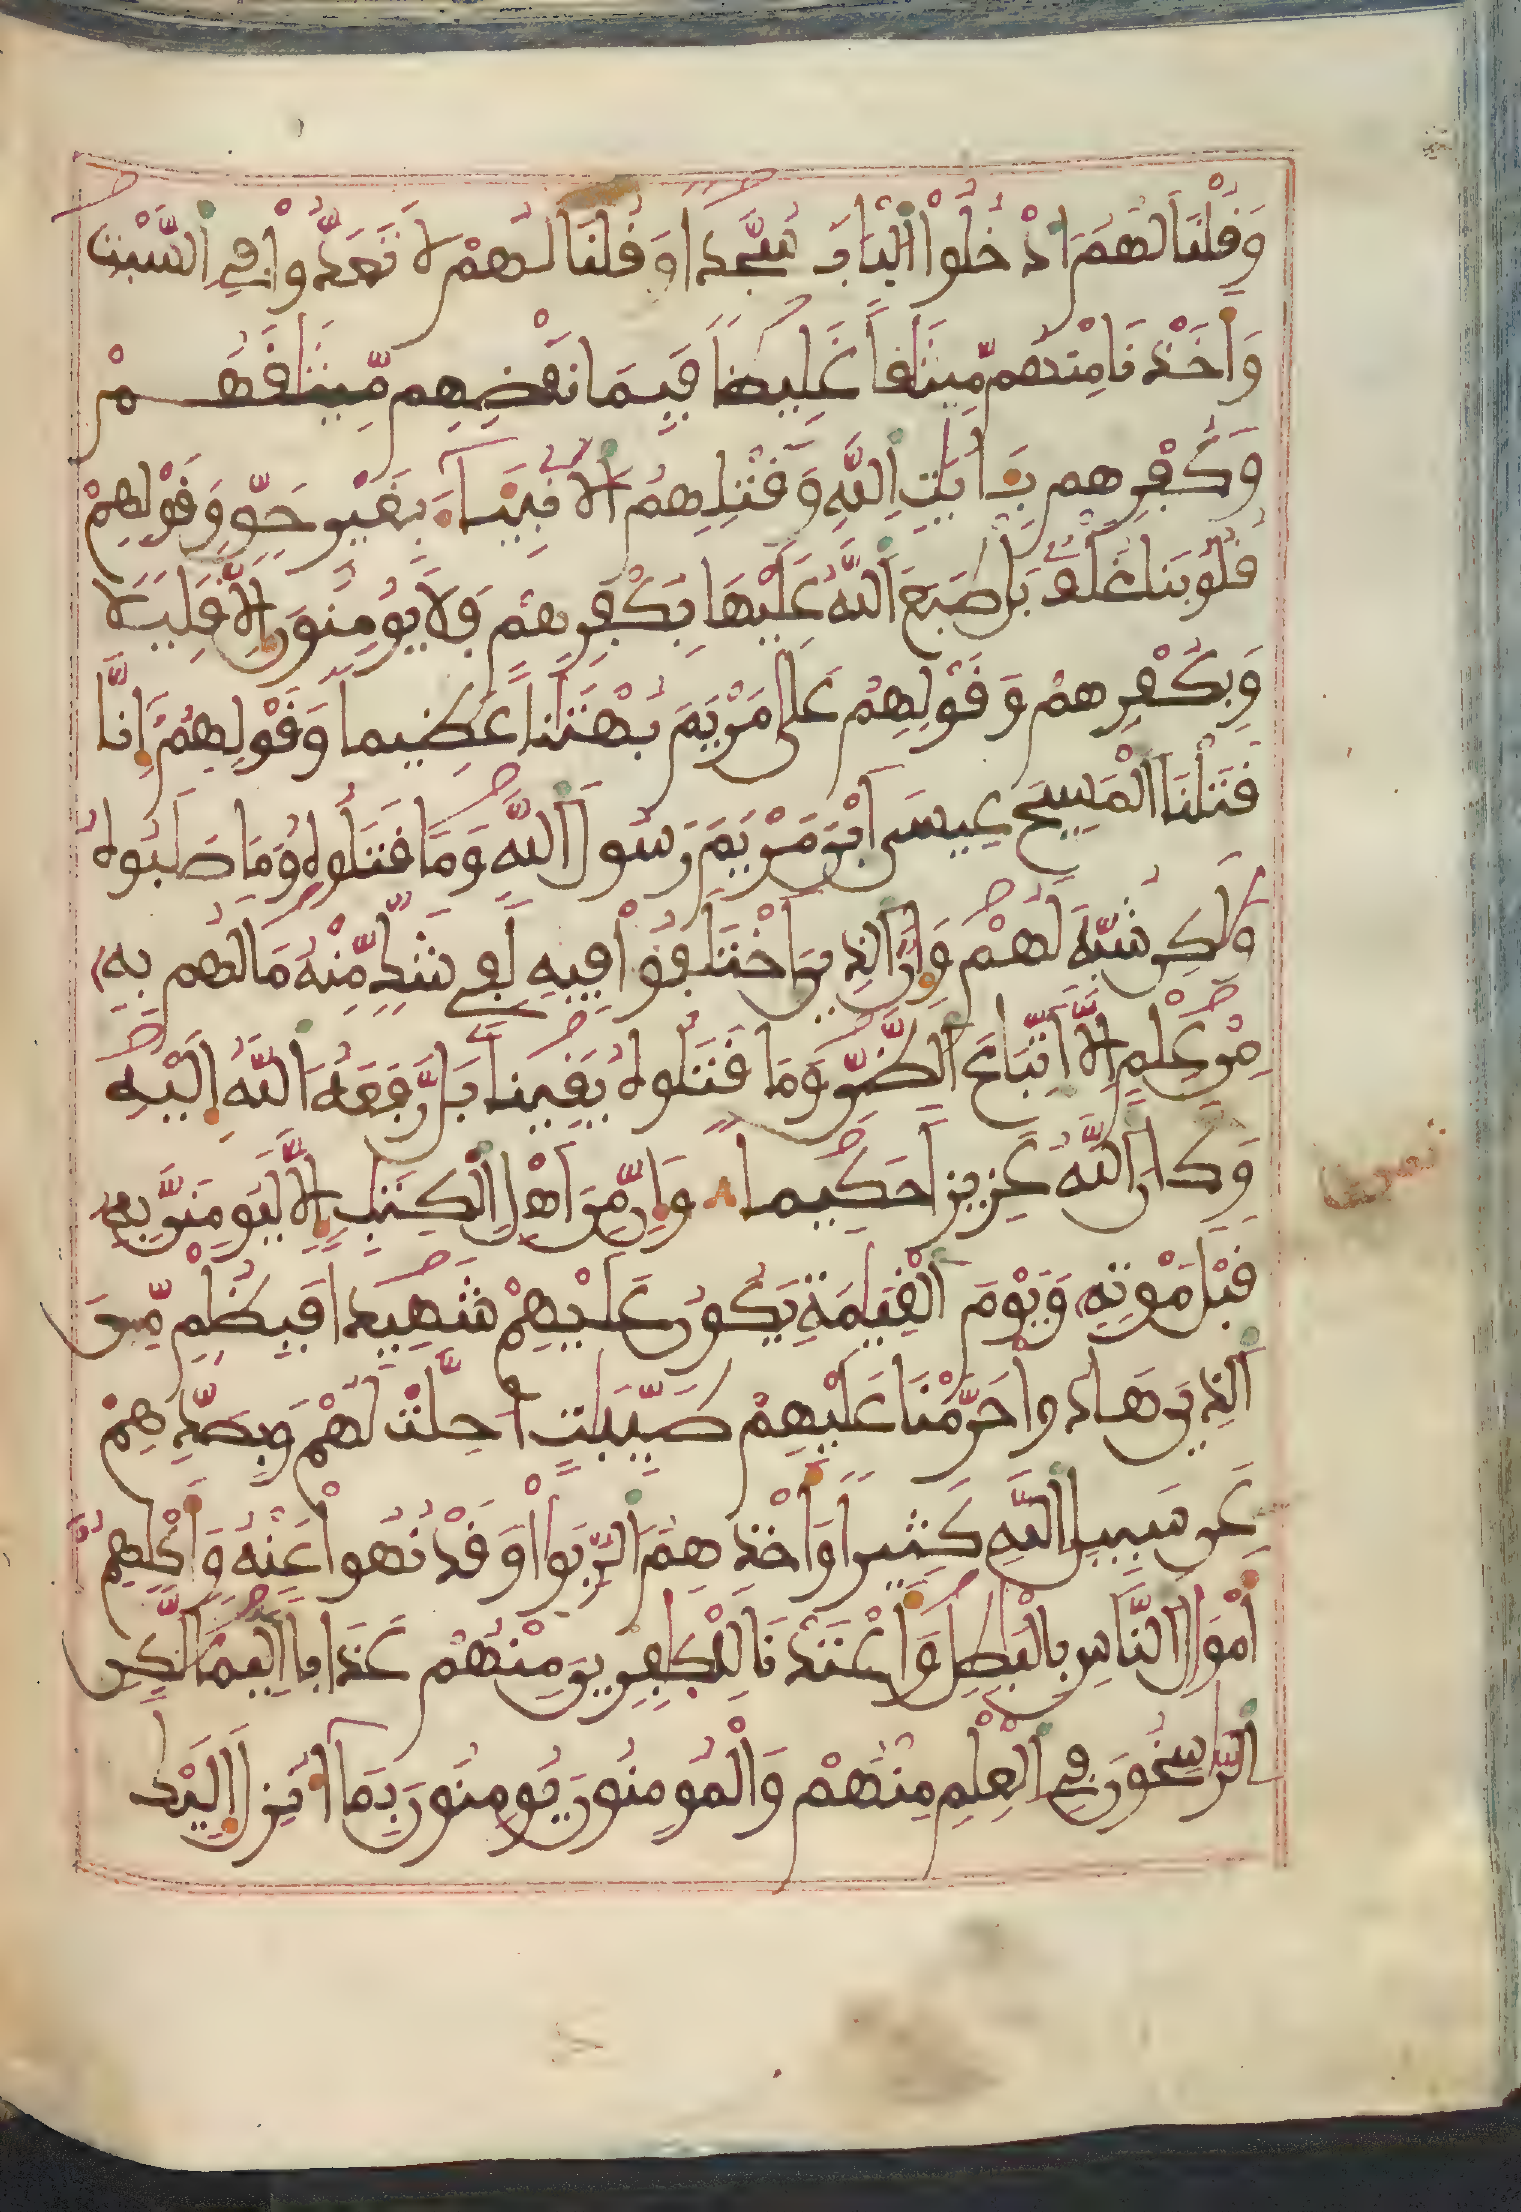 وَقُلْنَا لَهُمُ ادْخُلُوا الْبَابَ سُجَّدًا وَقُلْنَا لَهُمْ لَا تَعَدُّوا فِي السَّبْتِ
وَأَخَذْنَا مِنْهُم مِّيثَٰقًا غَلِيظًا فَبِمَا نَقْضِهِم مِّيثَٰقَهُمْ
وَكُفْرِهِم بِـَٔايَٰتِ اللَّهِ وَقَتْلِهِمُ الَانۢبِيَآءَ بِغَيْرِ حَقٍّ وَقَوْلِهِمْ
قُلُوبُنَا غُلْفٌ بَلْ طَبَعَ اللَّهُ عَلَيْهَا بِكُفْرِهِمْ فَلَا يُومِنُونَ إِلَّا قَلِيلًا
وَبِكُفْرِهِمْ وَقَوْلِهِمْ عَلَىٰ مَرْيَمَ بُهْتَٰنًا عَظِيمًا وَقَوْلِهِمُ إِنَّا
قَتَلْنَا الْمَسِيحَ عِيسَى ابْنَ مَرْيَمَ رَسُولَ اللَّهِ وَمَا قَتَلُوهُ وَمَا صَلَبُوهُ
وَلَٰكِن شُبِّهَ لَهُمْ وَإِنَّ الَّذِينَ اخْتَلَفُوا فِيهِ لَفِي شَكٍّ مِّنْهُ مَا لَهُم بِهِ
مِنْ عِلْمٍ إِلَّا اتِّبَاعَ الظَّنِّ وَمَا قَتَلُوهُ يَقِينًا بَل رَّفَعَهُ اللَّهُ إِلَيْهِ
وَكَانَ اللَّهُ عَزِيزًا حَكِيمًا وَإِن مِّنَ اهْلِ الْكِتَٰبِ إِلَّا لَيُومِنَنَّ بِهِ
قَبْلَ مَوْتِهِ وَيَوْمَ الْقِيَٰمَةِ يَكُونُ عَلَيْهِمْ شَهِيدًا فَبِظُلْمٍ مِّنَ
الَّذِينَ هَادُوا حَرَّمْنَا عَلَيْهِمْ طَيِّبَٰتٍ أُحِلَّتْ لَهُمْ وَبِصَدِّهِمْ
عَن سَبِيلِ اللَّهِ كَثِيرًا وَأَخْذِهِمُ الرِّبَوٰا وَقَدْ نُهُوا عَنْهُ وَأَكْلِهِمُ
أَمْوَٰلَ النَّاسِ بِالْبَٰطِلِ وَأَعْتَدْنَا لِلْكَٰفِرِينَ مِنْهُمْ عَذَابًا اَلِيمًا لَّٰكِنِ
الرَّٰسِخُونَ فِي الْعِلْمِ مِنْهُمْ وَالْمُومِنُونَ يُومِنُونَ بِمَا أُنزِلَ إِلَيْكَ